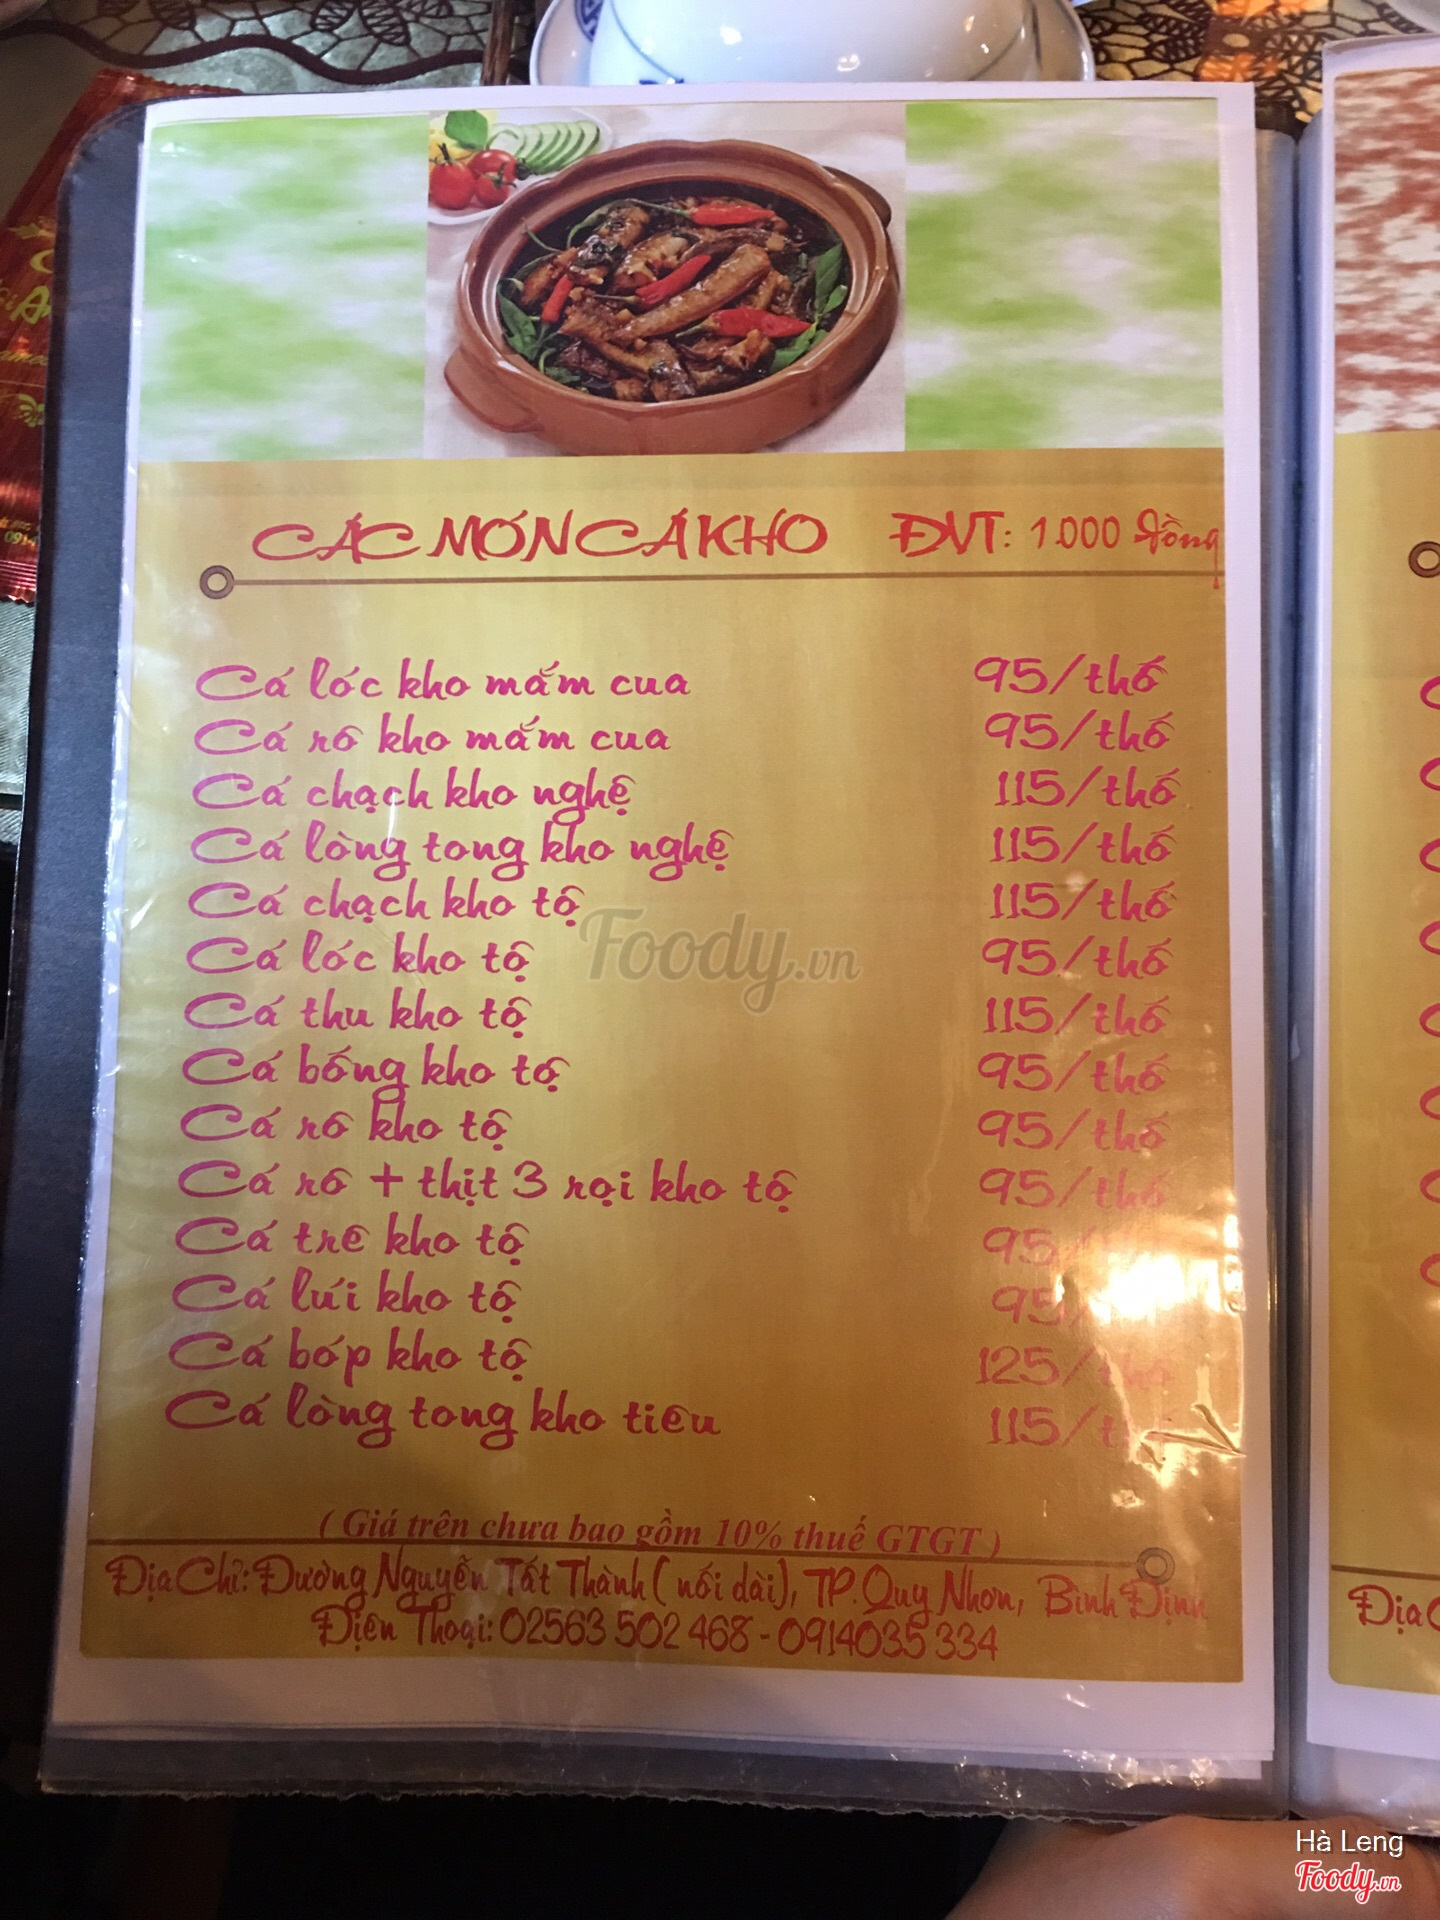 CÁC MÓN CÁ KHO ĐVT: 1.000 đồng
Cá lóc kho mắm cua 95/thố
Cá rô kho mắm cua 95/thố
Cá chạch kho nghệ 115/thố
Cá lòng tong kho nghệ 115/thố
Cá chạch kho tộ 115/thố
Cá lóc kho tộ 95/thố
Cá thu kho tộ 115/thố
Cá bống kho tộ 95/thố
Cá rô kho tộ 95/thố
Cá rô + thịt 3 rọi kho tộ 95/thố
Cá trê kho tộ 95
Cá lưi kho tộ 95/
Cá bóp kho tộ 125/thố
Cá lòng tong kho tiêu 115/
( Giá trên chưa bao gồm 10% thuế GTGT )
Địa Chỉ: Đường Nguyễn Tất Thành ( nối dài), TP. Quy Nhơn, Bình Định
Điện Thoại: 02563 502 468 - 0914035 334
Foody.vn
Hà Leng
Foody.vn